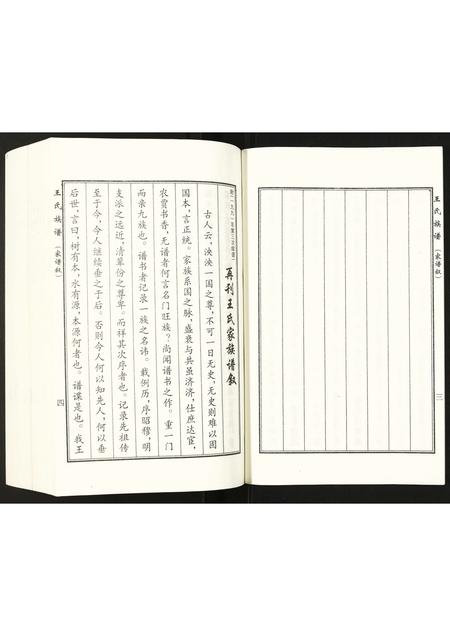 王氏族谱
(家谱叙)
三
附(一九九一年第三次续谱)
再刊王氏家族谱叙
古人云,泱泱一国之尊,不可一日无史,无史则难以固
国本,言正统。家族系国之脉,盛衰与共虽济济,仕庶达宦,
农贾书香,无谱者何言名门旺族?尚闻谱书之作。重一门
而亲九族也。谱书者记录一族之名讳。载例历,序昭穆,明
支派之远近,清辈份之尊卑。而祥其次序者也。记录先祖传
至于今,今人继续垂之于后。否则今人何以知先人,何以垂
后世,言曰,树有本,水有源,本源何者也。谱谍是也。我王
王氏族谱
(家谱叙)
四